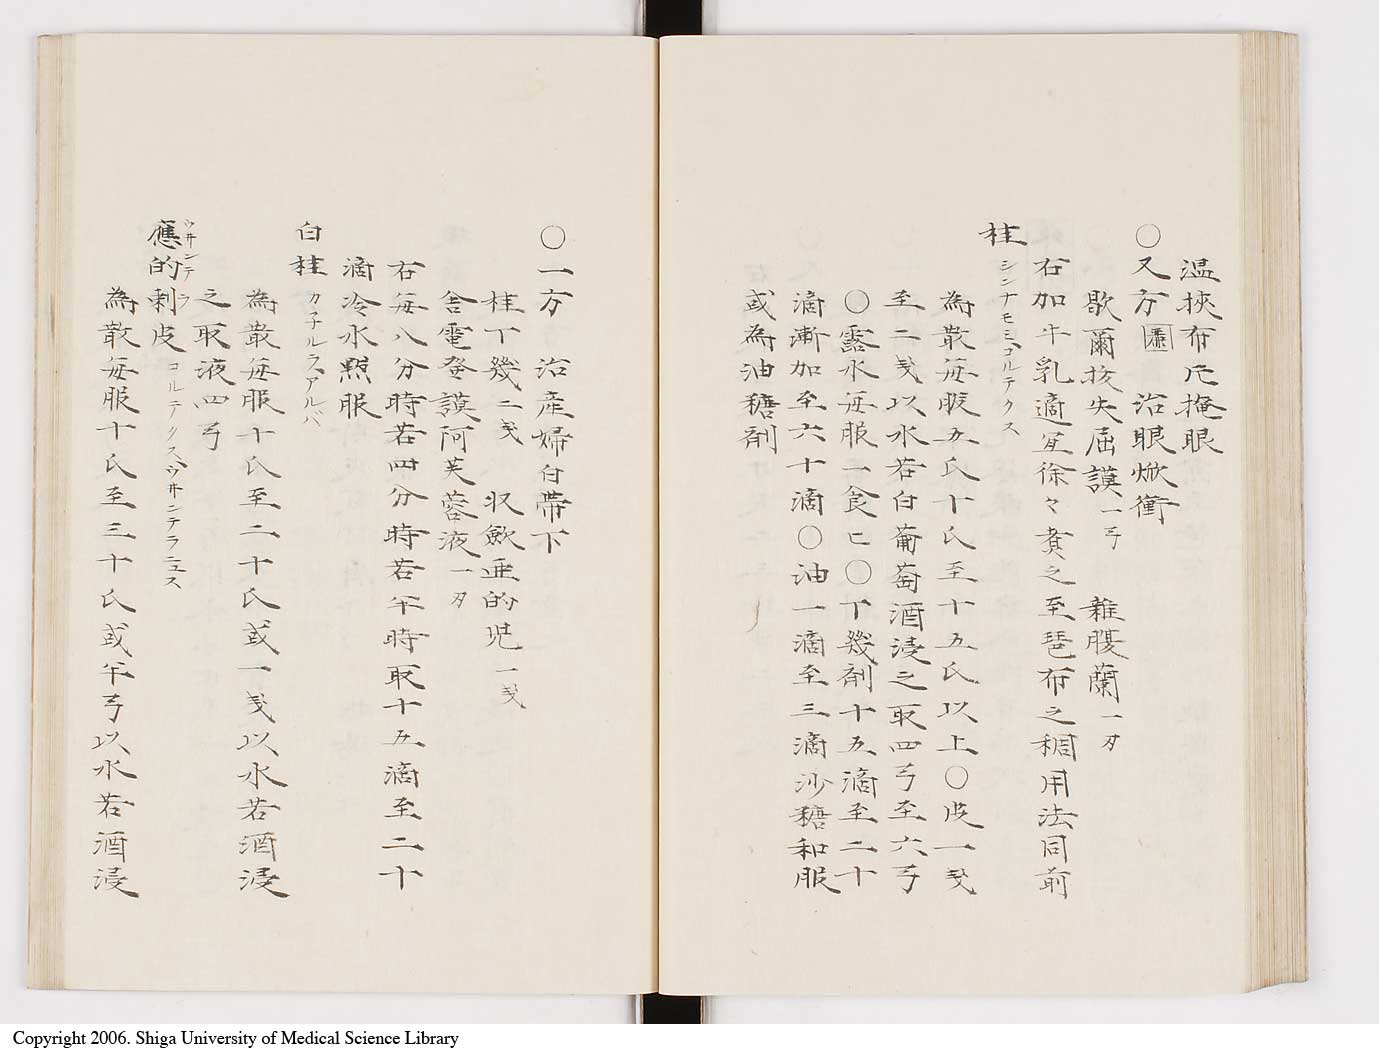 温挾布片掩眼
○又方 治眼焮衝
歇爾抜失屈謨一弓 雜腹蘭一刃
右加牛乳適宜徐々煑之至琶布之稠用法同前
桂 シンナモミ、コルテクス
為散毎服五氏十氏至十五氏以上○皮一戔
至二戔以水若白葡萄酒浸之取四弓至六弓
○露水毎服二食匕○丁幾剤十五滴至二十
滴漸加至六十滴○油一滴至三滴沙糖和服
或為油糖剤
○一方 治産婦白帯下
桂丁幾二戔 収斂亜的児一戔
舎電登謨阿芙蓉液一刃
右毎八分時若四分時若半時取十五滴至二十
滴冷水點服
白桂 カネルラ、アルバ
為散毎服十氏至二十氏或一戔以水若酒浸
之取液四弓
應的剌皮 ウヰンテラ コルテクス、ウヰンテラニュス
為散毎服十氏至三十氏或半弓以水若酒浸
Copyright 2006. Shiga University of Medical Science Library